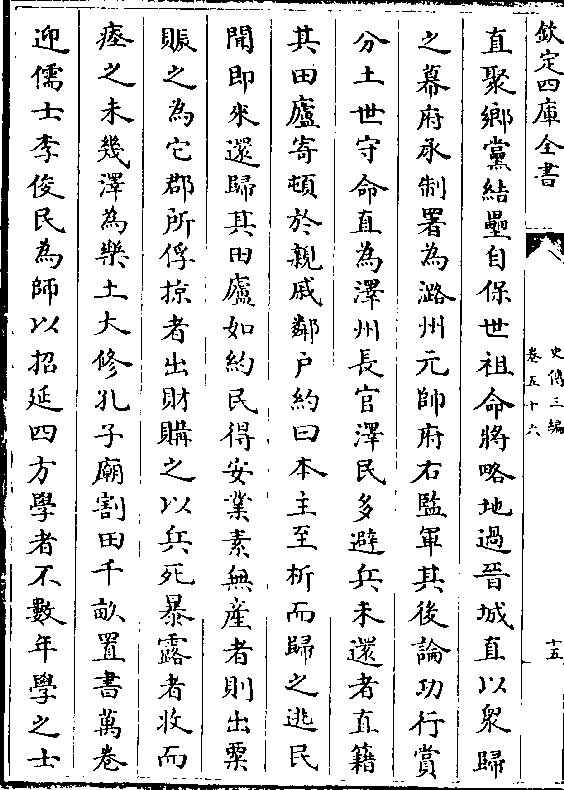 欽定四庫全書
史傳三編
卷五十六
十五
直聚鄉黨結壘自保世祖命將略地過晉城直以衆歸
之幕府承制署為潞州元帥府右監軍其後論功行賞
分土世守命直為澤州長官澤民多避兵未還者直籍
其田廬寄頓於親戚鄰户約曰本主至析而歸之逃民
聞即來還歸其田廬如約民得安業素無産者則出粟
賑之為它郡所俘掠者出財購之以兵死暴露者收而
瘞之未幾澤為樂土大修孔子廟割田千畝置書萬卷
迎儒士李俊民為師以招延四方學者不數年學之士